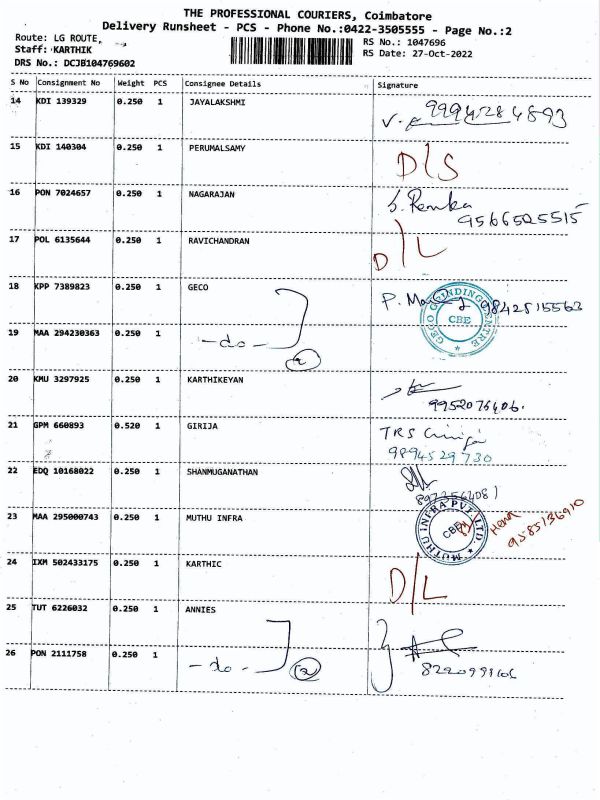 THE PROFESSIONAL COURIERS, Coimbatore
Delivery Runsheet - PCS - Phone No.:0422-3505555 - Page No.:2
Route: LG ROUTE,
Staff: KARTHIK
DRS No.: DCJB104769602
RS No.: 1047696
RS Date: 27-Oct-2022
S No Consignment No Weight PCS Consignee Details Signature
14 KDI 139329 0.250 1 JAYALAKSHMI 9994284893
15 KDI 140304 0.250 1 PERUMALSAMY D/S
16 PON 7024657 0.250 1 NAGARAJAN S. Renuka
9566525515
17 POL 6135644 0.250 1 RAVICHANDRAN D/L
18 KPP 7389823 0.250 1 GECO P. 9842515563
GECO GRINDING CENTRE
CBE
19 MAA 294230363 0.250 1 -do- 2
20 KMU 3297925 0.250 1 KARTHIKEYAN
9952076406.
21 GPM 660893 0.520 1 GIRIJA TRS Girija
9894529730
22 EDQ 10168022 0.250 1 SHANMUGANATHAN
23 MAA 295000743 0.250 1 MUTHU INFRA
MUTHU INFRA PVT. LTD.
CBE
9585136910
24 IXM 502433175 0.250 1 KARTHIC D/L
25 TUT 6226032 0.250 1 ANNIES
26 PON 2111758 0.250 1 -do- 2